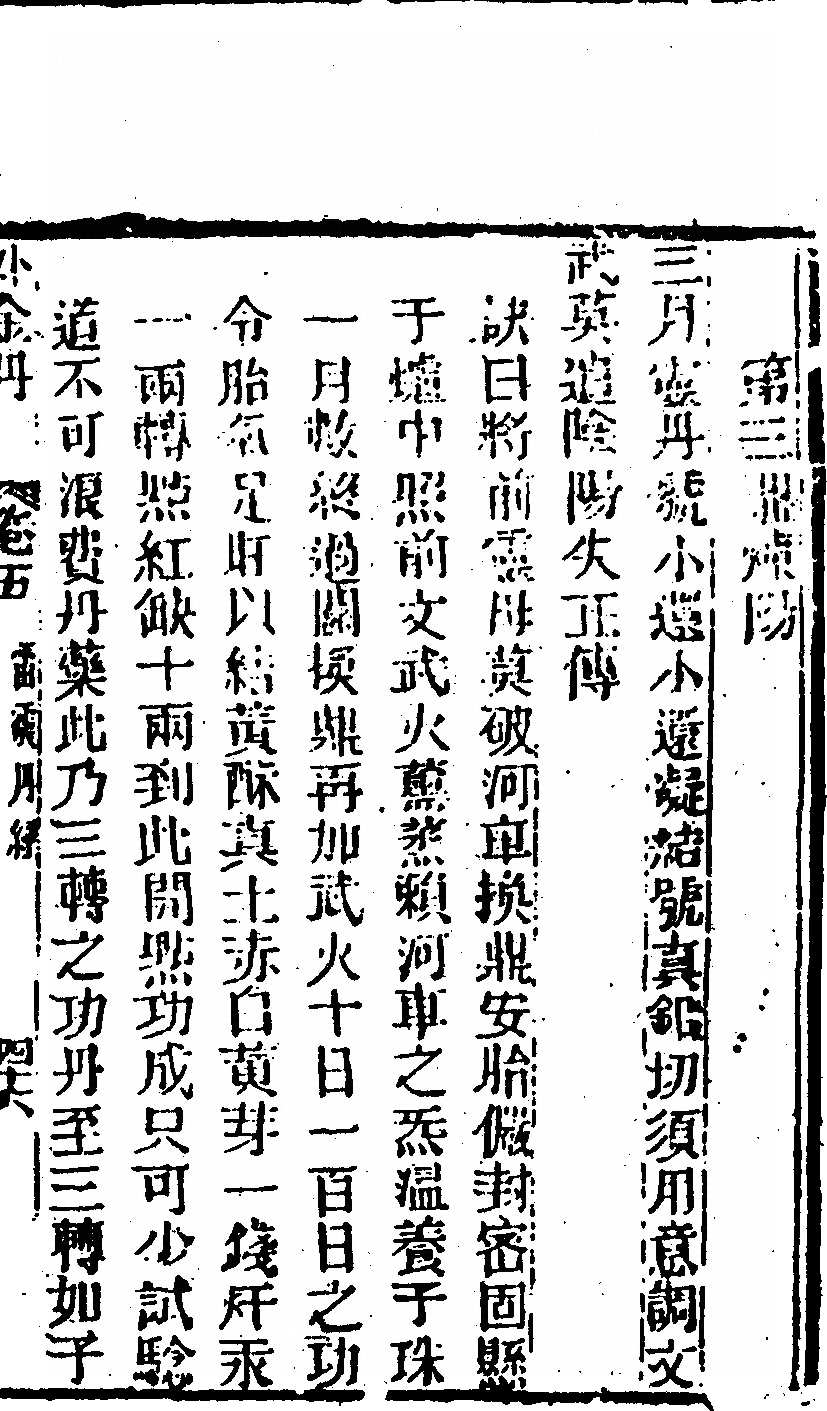 第三鼎煉陽
三月靈丹號小還小還凝結號真鉛切須用意調文
武莫遣陰陽失正傳
訣曰將前靈丹莫破河車換鼎安胎儼封密固懸
于爐中照前文武火薰蒸賴河車之炁溫養子珠
一月數終過關換鼎再加武火十日一百日之功
令胎氣足時以結黃酥真土赤白黃芽一錢煉汞
一兩轉點紅缺十兩到此開點功成只可少試驗
道不可浪費丹藥此乃三轉之功丹至三轉如子
外金丹 卷五 雷震丹經 四六